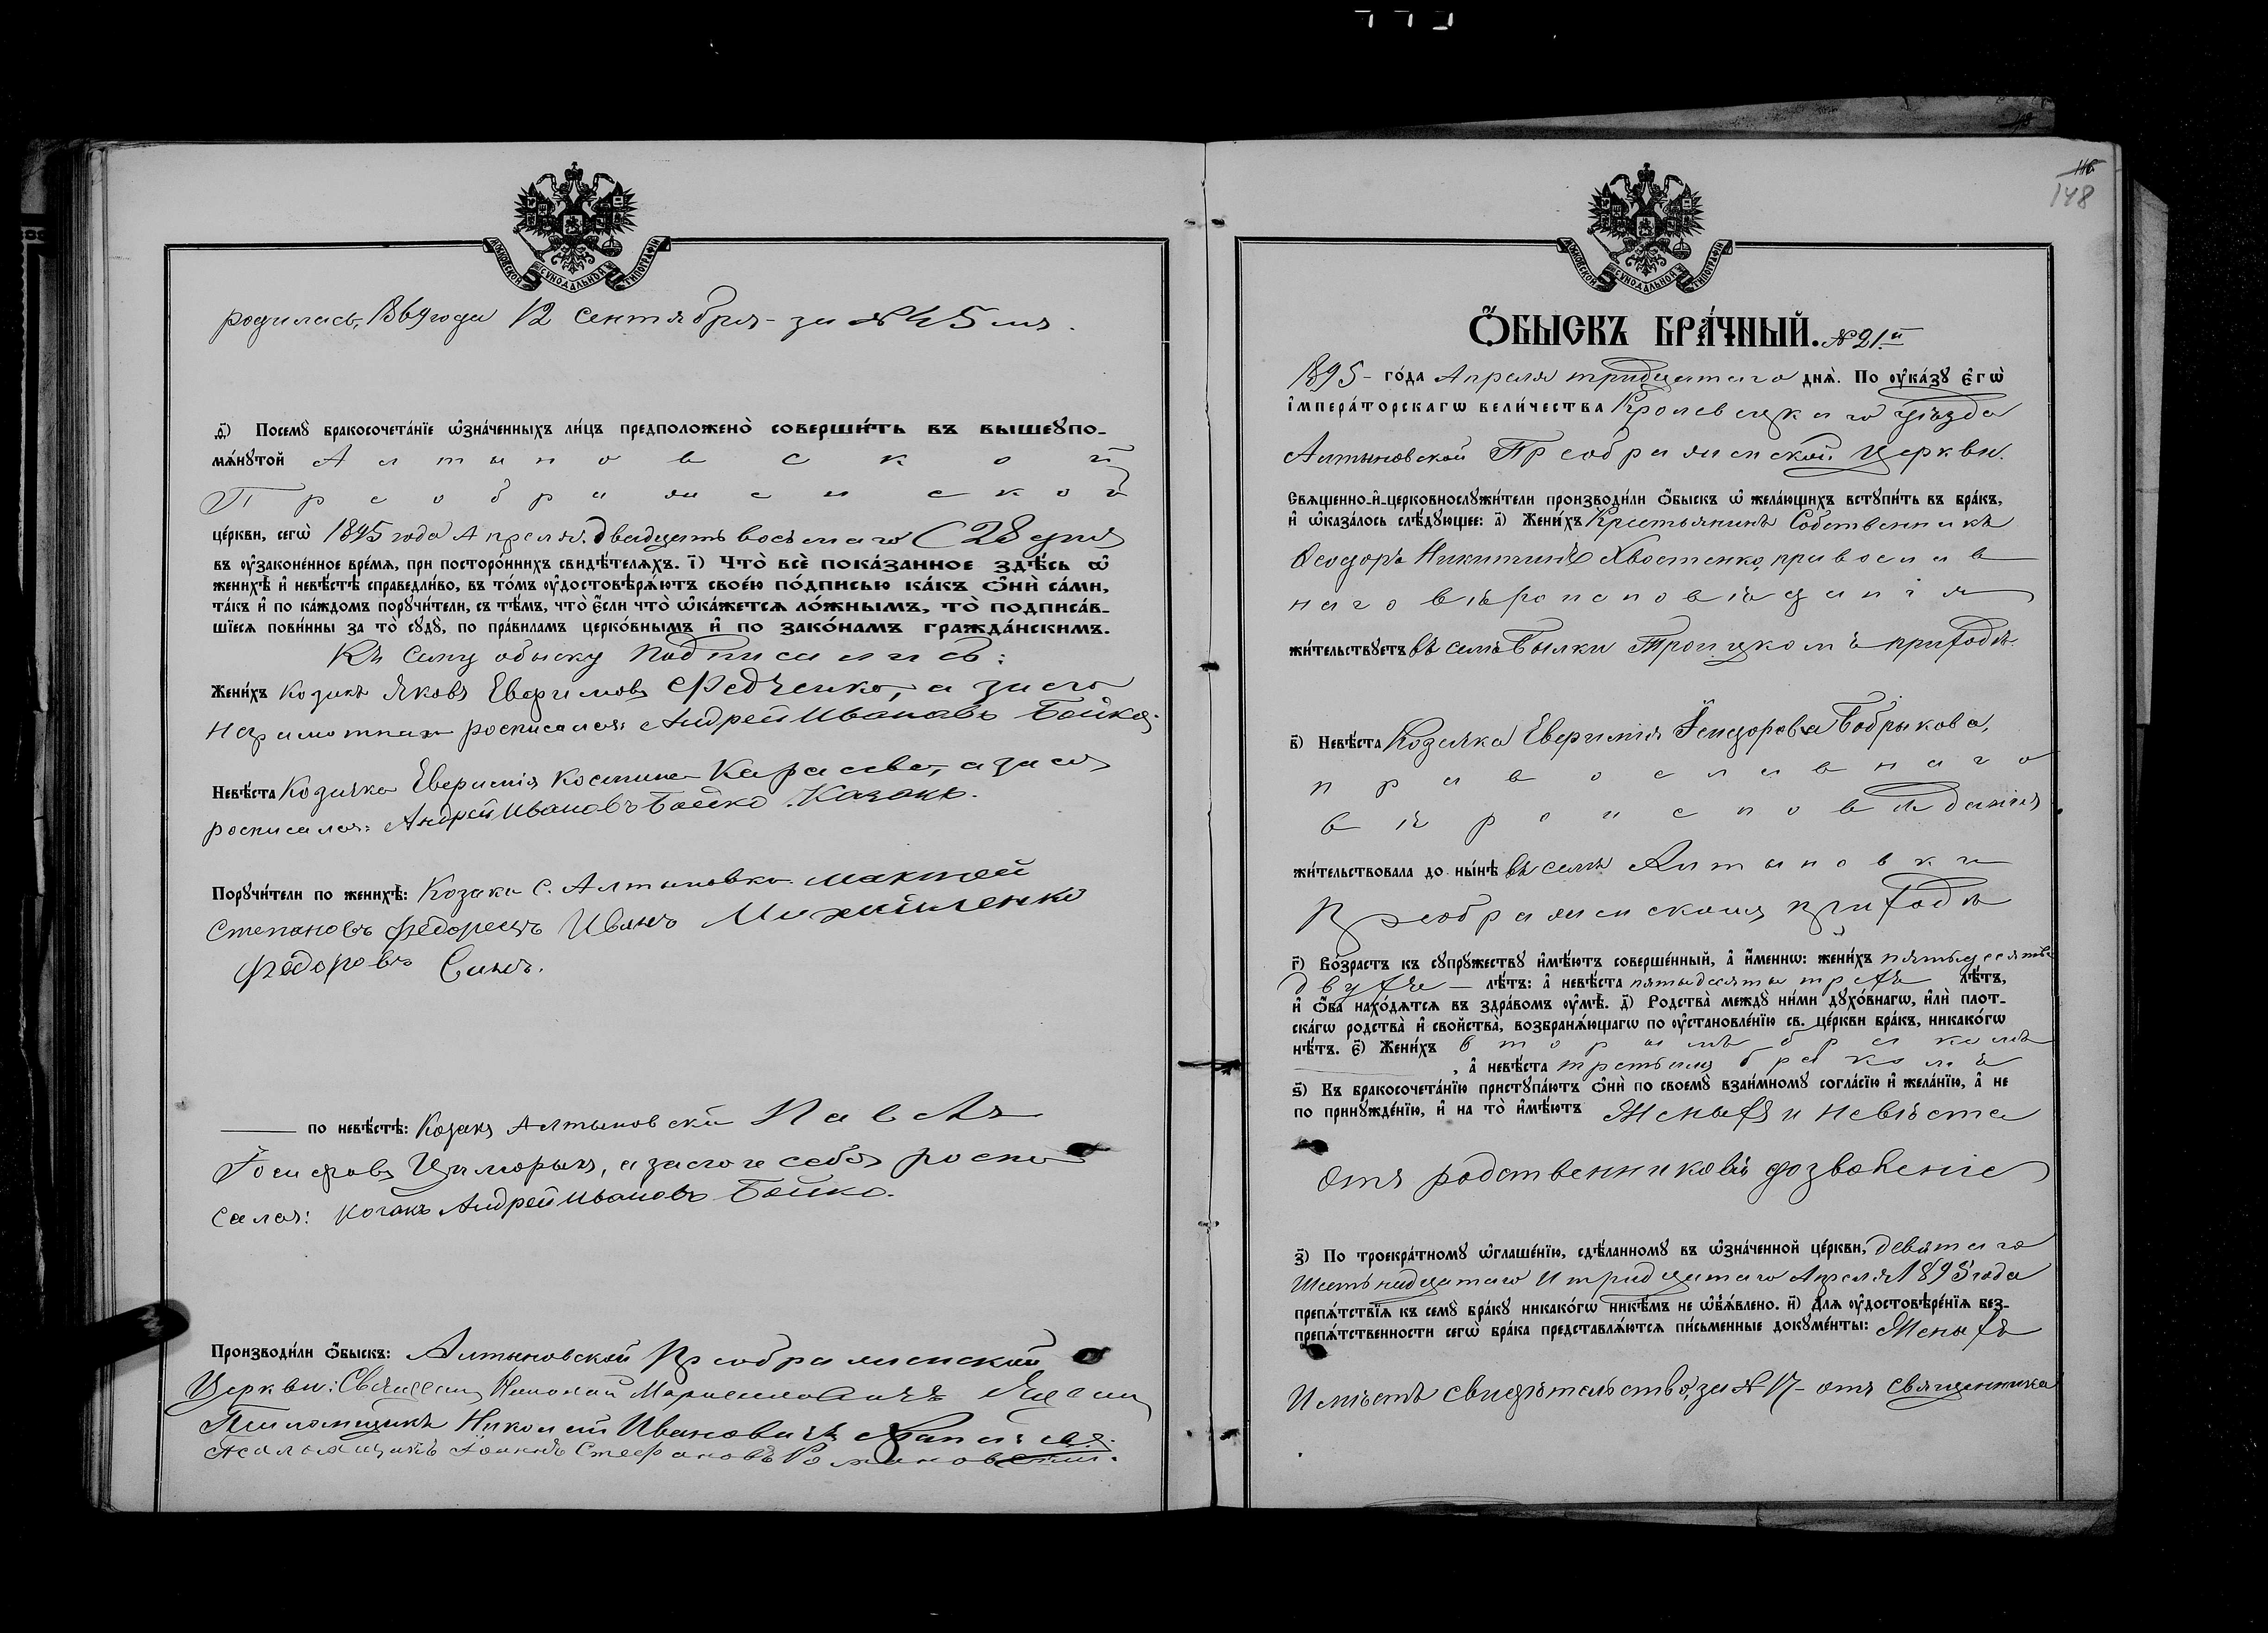 МОСКОВСКОЙ СѴНОДАЛЬНОЙ ТИПОГРАФІИ
родилась, 1869 года 12 сентября - за № 45 мъ.
д҃) Посемꙋ бракосочета́нїе ѡ҆зна́ченныхъ ли́цъ предположено̀ соверши́ть въ вышеꙋпо-
мѧ́нꙋтой Алтыновской
Преображенской
це́ркви, сегѡ̀ 1895 года Апреля. двадцать восьмаго (28 дня
въ ᲂу҆зако́ненное вре́мѧ, при посторо́ннихъ свидѣ́телѧхъ. і҃) Что̀ всѐ пока́занное здѣ́сь ѡ҆
женихѣ̀ и҆ невѣ́стѣ справедли́во, въ то́мъ ᲂу҆достовѣрѧ́ютъ свое́ю по́дписью ка́къ ѻ҆нѝ са́ми,
та́къ и҆ по ка́ждомъ порꙋчи́тели, съ тѣ́мъ, что̀ є҆́сли что̀ ѡ҆ка́жетсѧ ло́жнымъ, то̀ подписа́в-
шїесѧ пови́нны за то̀ сꙋдꙋ̀, по пра́виламъ церко́внымъ и҆ по зако́намъ гражда́нскимъ.
Къ сему обыску подписались:
Жени́хъ козакъ Яковъ Евфимовъ Федченко, а за его
неграмотнаго росписался: Андрей Ивановъ Бойко.
Невѣ́ста Козачка Евфимія Косьмина Карасева, а за ея
росписался: Андрей Ивановъ Бойко. Казакъ.
Порꙋчи́тели по женихѣ̀: Козаки с. Алтыновка
Степановъ Федорецъ Иванъ Михайленко
Федоровъ Сынъ.
по невѣ́стѣ: Козакъ Алтыновскій Павелъ
Іосифовъ Цимурыкъ, а за его и себя роспи
сался: козакъ Андрей Ивановъ Бойко.
Производи́ли ѻ҆́быскъ: Алтыновской Преображенской
Церкви: Священ
Псаломщикъ Николай Ивановичъ
Псаломщикъ Іоаннъ Стефановъ Романовскій.
148
МОСКОВСКОЙ СѴНОДАЛЬНОЙ ТИПОГРАФІИ
Ѻ҆́БЫСКЪ БРА́ЧНЫЙ. № 21.й
1895 - го́да Апреля тридцатаго днѧ̀. По ᲂу҆ка́зꙋ є҆гѡ̀
і҆мпера́торскагѡ вели́чества Кролевецкаго уѣзда
Алтыновской Преображенской Церкви.
Свѧще́нно-и҆-церковнослꙋжи́тели производи́ли ѻ҆́быскъ ѡ҆ жела́ющихъ встꙋпи́ть въ бра́къ,
и҆ ѡ҆каза́лось слѣ́дꙋющее: а҃) Жени́хъ Крестьянинъ Собственникъ
Ѳеодоръ Никитинъ Хвостенко, православ
наго вѣроисповѣданія
жи́тельствꙋетъ въ селѣ Былки Троицкомъ приходѣ.
в҃) Невѣ́ста Козачка Евфимія Ѳеодорова Бобрыкова,
православнаго
вѣроисповѣданія
жи́тельствовала до ны́нѣ въ селѣ Алтыновки
Преображенскомъ приходѣ
г҃) Во́зрастъ къ сꙋпрꙋ́жествꙋ и҆мѣ́ютъ соверше́нный, а҆ и҆́меннѡ: жени́хъ пятьдесятъ
двухъ — лѣ́тъ: а҆ невѣ́ста пятьдесятъ трехъ лѣ́тъ,
и҆ ѻ҆́ба нахо́дѧтсѧ въ здра́вомъ ᲂу҆мѣ̀. д҃) Родства̀ междꙋ̀ ни́ми дꙋхо́внагѡ, и҆лѝ плот-
ска́гѡ родства̀ и҆ сво́йства, возбранѧ́ющагѡ по ᲂу҆становле́нїю св. це́ркви бра́къ, никако́гѡ
нѣ́тъ. є҃) Жени́хъ вторымъ бракомъ
, а҆ невѣ́ста третьимъ бракомъ
ѕ҃) Къ бракосочета́нїю пристꙋпа́ютъ ѻ҆нѝ по своемꙋ̀ взаи́мномꙋ согла́сїю и҆ жела́нїю, а҆ не
по принꙋжде́нїю, и҆ на то̀ и҆мѣ́ютъ Женихъ и невѣста
отъ родственниковъ дозволеніе
з҃) По троекра́тномꙋ ѡ҆глаше́нїю, сдѣ́ланномꙋ въ ѡ҆зна́ченной це́ркви, девятаго
Шестьнадцатаго и тридцатаго Апреля 1895 года
препѧ́тствїѧ къ семꙋ̀ бра́кꙋ никако́гѡ никѣ́мъ не ѡ҆б̾ѧ́влено. и҃) Длѧ ᲂу҆достовѣре́нїѧ без-
препѧ́тственности сегѡ̀ бра́ка представлѧ́ютсѧ пи́сьменные докꙋме́нты: Женихъ
Имѣетъ свидѣтельство, за № 17 - отъ священника